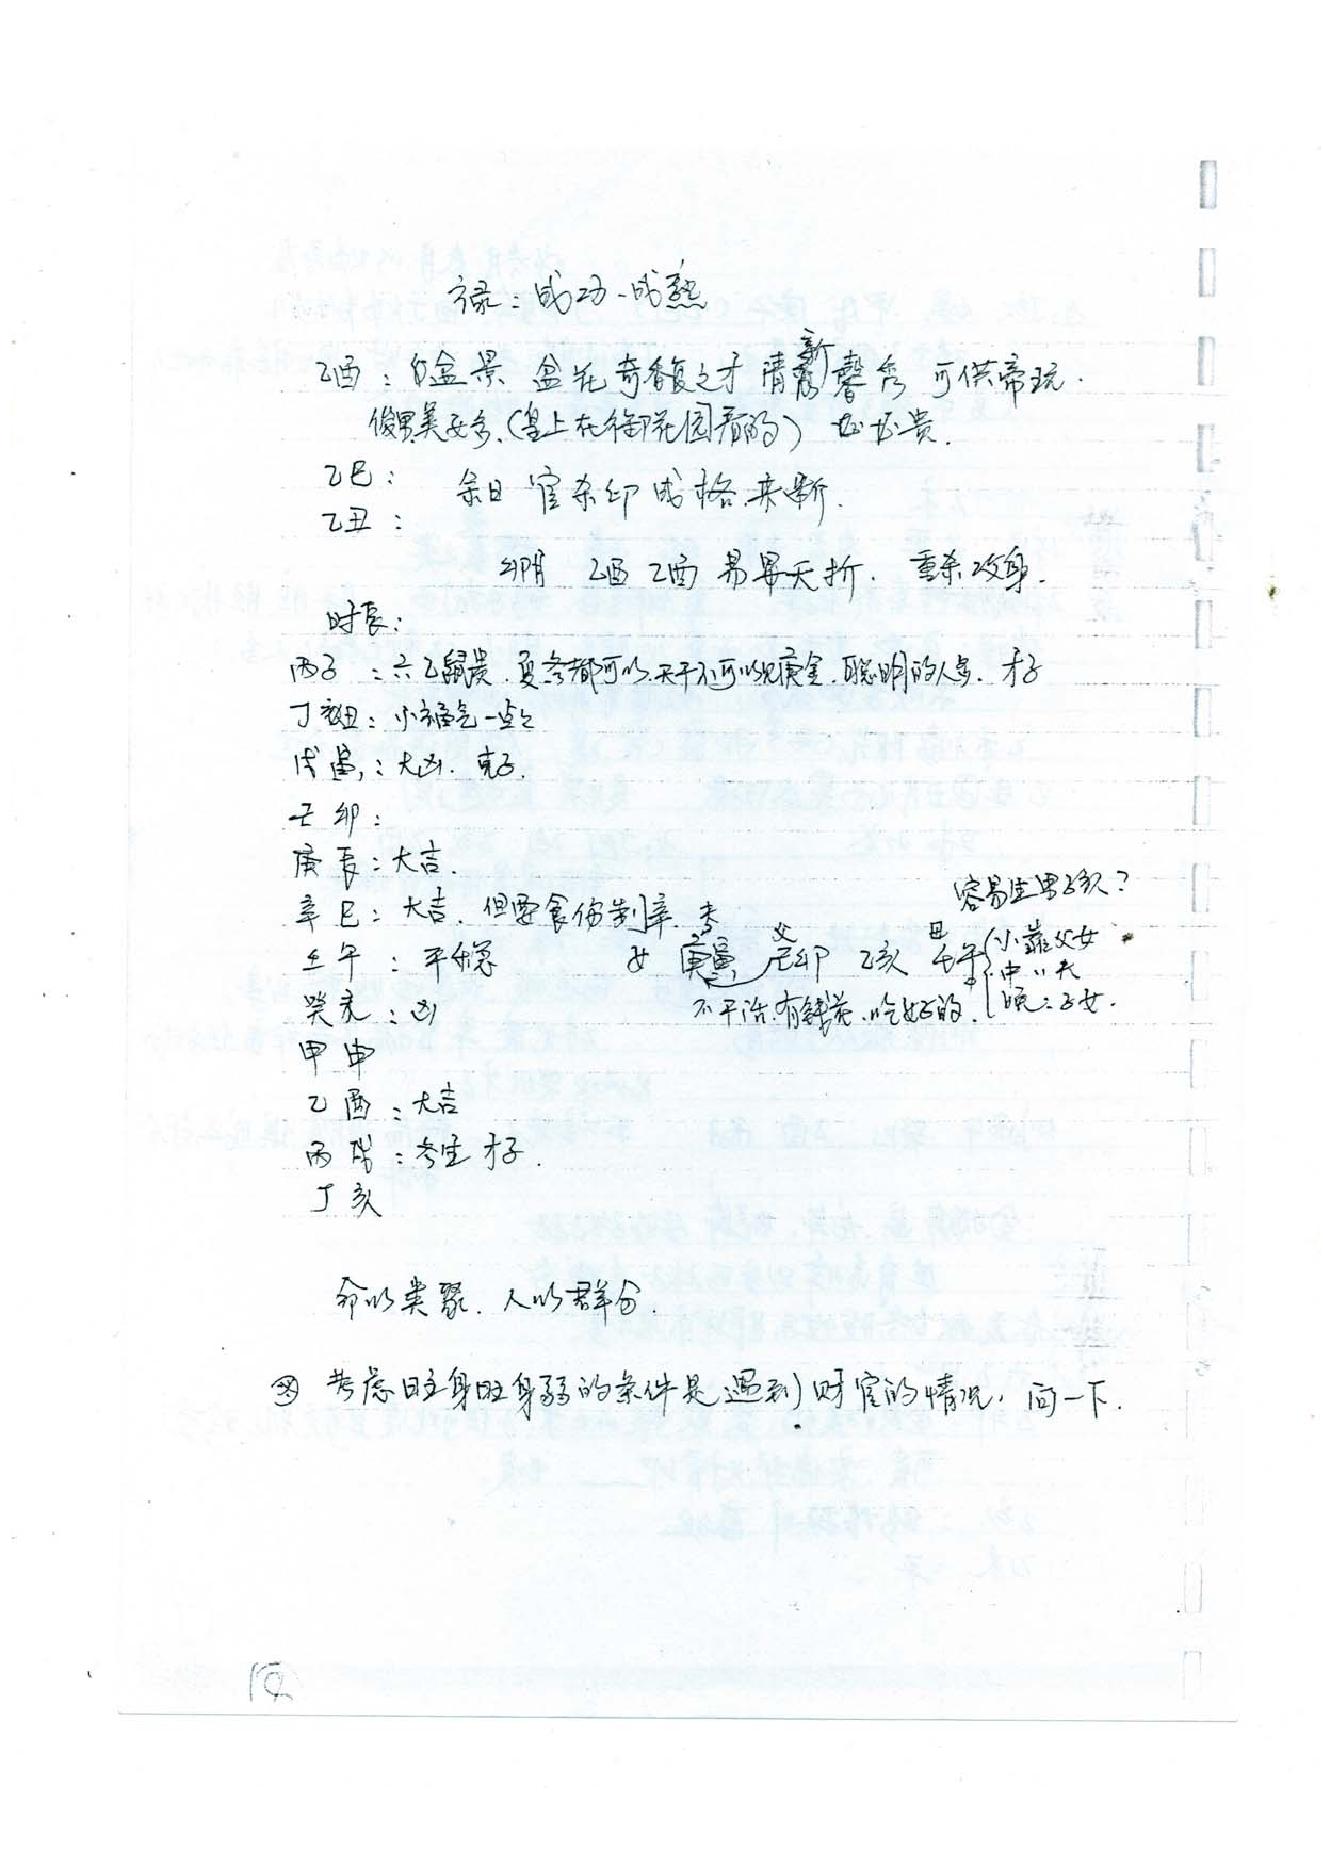 禄：成功、成熟
乙酉：盆景 盆花 奇香馥之才 清新 馨秀 可供帝玩.
俊男美女多.(皇上在御花园看的) 贵.
乙巳： 杀日 官杀印成格.来断.
乙丑：
卯月 乙酉 乙酉 易早夭折. 重杀攻身.
时辰：
丙子：六乙鼠贵.夏冬都可以.天干不可以见庚金.聪明的人多. 才子
丁丑：小福气一点
戊寅：大凶. 克子.
己卯：
庚辰：大吉.
容易生男孩?
辛巳：大吉.但要食伤制辛.
壬午：平稳 女 庚寅 己卯 乙亥 壬午 小靠父女
中〃夫
癸未：凶 不干活.有钱花.吃好的. 晚〃子女.
甲申
乙酉：大吉
丙戌：考生 才子.
丁亥
命以类聚.人以群分.
考虑日主身旺身弱的条件是遇到财官的情况,问一下.